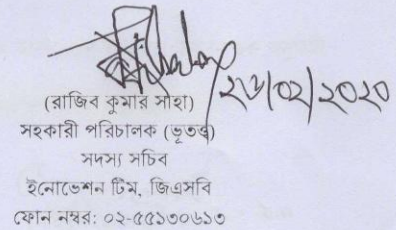 ২৬/০২/২০২০
(রাজিব কুমার সাহা)
সহকারী পরিচালক (ভূতত্ত্ব)
সদস্য সচিব
ইনোভেশন টিম, জিএসবি
ফোন নম্বর: ০২-৫৫১৩০৬১৩